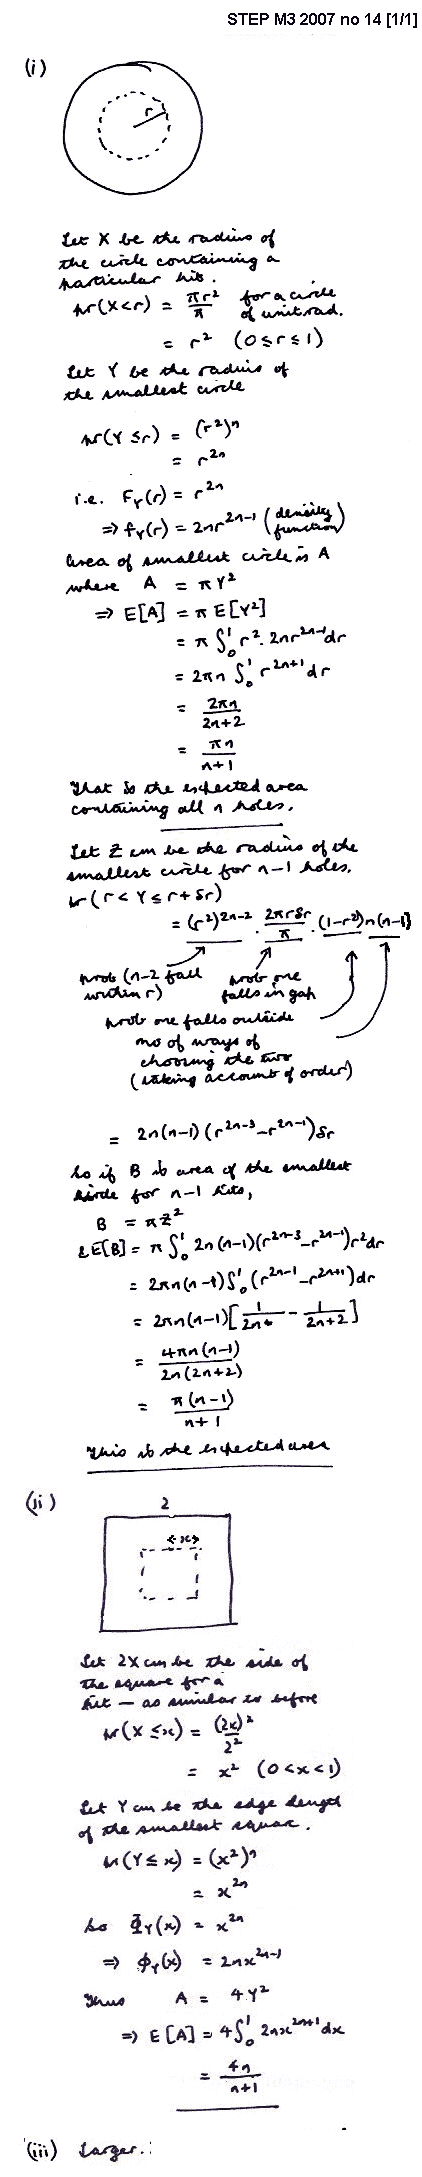 STEP M3 2007 no 14 [1/1]
(i)
r
Let X be the radius of
the circle containing a
particular hit.
pr(X<r) = πr²/π for a circle
of unit rad.
= r² (0≤r≤1)
Let Y be the radius of
the smallest circle
pr(Y≤r) = (r²)ⁿ
= r²ⁿ
i.e. F_Y(r) = r²ⁿ
⇒ f_Y(r) = 2nr²ⁿ⁻¹ (density
function)
Area of smallest circle is A
where A = πY²
⇒ E[A] = π E[Y²]
= π ∫₀¹ r². 2nr²ⁿ⁻¹dr
= 2πn ∫₀¹ r²ⁿ⁺¹dr
= 2πn/(2n+2)
= πn/(n+1)
That is the expected area
containing all n holes.
Let Z cm be the radius of the
smallest circle for n-1 holes.
pr(r<Y≤r+δr)
= (r²)²ⁿ⁻² . 2πrδr/π . (1-r²)n(n-1)
prob (n-2 fall
within r)
prob one
falls in gap
prob one falls outside
no of ways of
choosing the two
(taking account of order)
= 2n(n-1)(r²ⁿ⁻³-r²ⁿ⁻¹)δr
So if B is area of the smallest
circle for n-1 hits,
B = πZ²
& E[B] = π ∫₀¹ 2n(n-1)(r²ⁿ⁻³-r²ⁿ⁻¹)r²dr
= 2πn(n-1)∫₀¹(r²ⁿ⁻¹-r²ⁿ⁺¹)dr
= 2πn(n-1)[1/2n - 1/(2n+2)]
= 4πn(n-1)/2n(2n+2)
= π(n-1)/(n+1)
This is the expected area
(ii) 2
x
Let 2X cm be the side of
the square for a
hit — as similar to before
pr(X≤x) = (2x)²/2²
= x² (0<x<1)
Let Y cm be the edge length
of the smallest square.
pr(Y≤x) = (x²)ⁿ
= x²ⁿ
So Φ_Y(x) = x²ⁿ
⇒ ϕ_Y(x) = 2nx²ⁿ⁻¹
Thus A = 4Y²
⇒ E[A] = 4∫₀¹ 2nx²ⁿ⁺¹dx
= 4n/(n+1)
(iii) Larger.